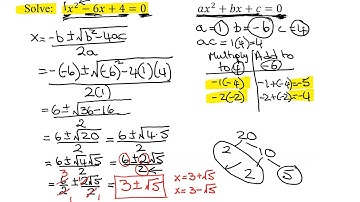 Solve: 1x² − 6x + 4 = 0
x = −b ± √b² − 4ac
2a
= −(−6) ± √(−6)² − 4(1)(4)
2(1)
= 6 ± √36 − 16
2
= 6 ± √20
2
= 6 ± √4·5
2
= 6 ± √4√5
2
= 6 ± 2√5
2
= 6/2 ± 2√5/2
3 1
1 1
3 ± √5
x = 3 + √5
x = 3 − √5
ax² + bx + c = 0
a = 1 b = −6 c = 4
ac = 1(4) = 4
Multiply to 4 | Add to (−6)
−1(−4) | −1 + (−4) = −5
−2(−2) | −2 + (−2) = −4
20
2 10
2 5